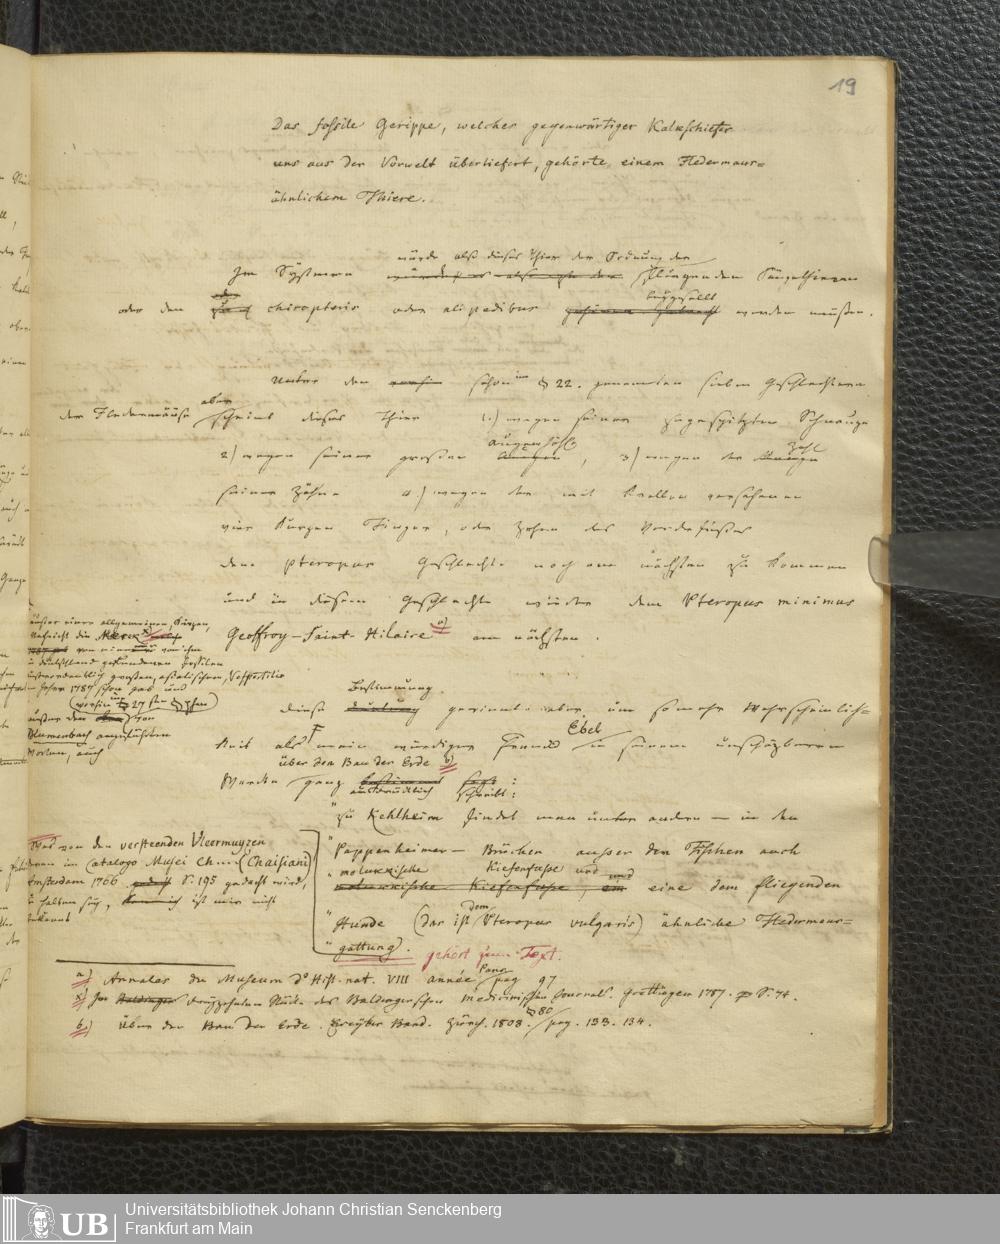 19
Das fossile Gerippe, welches gegenwärtiger Kalkschiefer
uns aus der Vorwelt überliefert, gehörte einem Fledermaus=
ähnlichem Thiere.
würde also dieses Thier der Ordnung der
Im Systeme fliegenden Säugethieren
oder den chiropteris oder alipedibus beygesellt werden müssen.
Unter den schon im § 22. genannten sieben Geschlechtern
der Fledermäuse aber scheint dieses Thier 1.) wegen seiner zugespitzten Schnauze
2) wegen seiner großen Augenhöhle, 3) wegen der Zahl
seiner Zähne 4.) wegen der mit Krallen versehenen
vier kurzen Finger, oder Zehen des Vorderfußes
dem Pteropus Geschlechte noch am nächsten zu kommen
und in diesem Geschlechte wieder dem Pteropus minimus
Geoffroy-Saint-Hilaire a) am nächsten.
außer einer allgemeinen, kurzen,
Nachricht die Merck x)
von einem von ihm
in Deutschland gefundenen Fossilen
außerordentlich großen, asiatischen, Vespertilio
im Jahre 1787 schon gab und
außer den schon
Blumenbach angeführten
Worten, auch
Diese Bestimmung gewinnt aber um so mehr Wahrschein­lich=
keit als mein würdiger Freund Ebel in seinem unschäzbaren
Werke über den Bau der Erde b) ganz ausdrücklich schreibt:
"zu Kehlheim findet man unter andern — in den
" Pappenheimer — Brüchen ausser den Fischen auch
" moluckische Kiefenfüsse und eine dem fliegenden
" Hunde (das ist dem Pteropus vulgaris) ähnliche Fledermaus=
" gattung).
gehört zum Text.
Was von den versteenden Vleermuyzen
deren im Catalogo Musei Ch... (Chaisiani)
Amsterdam 1766 S. 195 gedacht wird,
zu halten sey, ist mir nicht
bekannt
a) Annales du Museum d'Hist. nat. VIII année Paris pag 97
x) Im dreyzehnten Stücke des Baldingerschen medicinischen Journals. Göttingen 1787. S. 74.
b) Über den Bau der Erde. Zweyter Band. Zürch. 1808. § 80 pag. 133. 134.
UB
Universitätsbibliothek Johann Christian Senckenberg
Frankfurt am Main